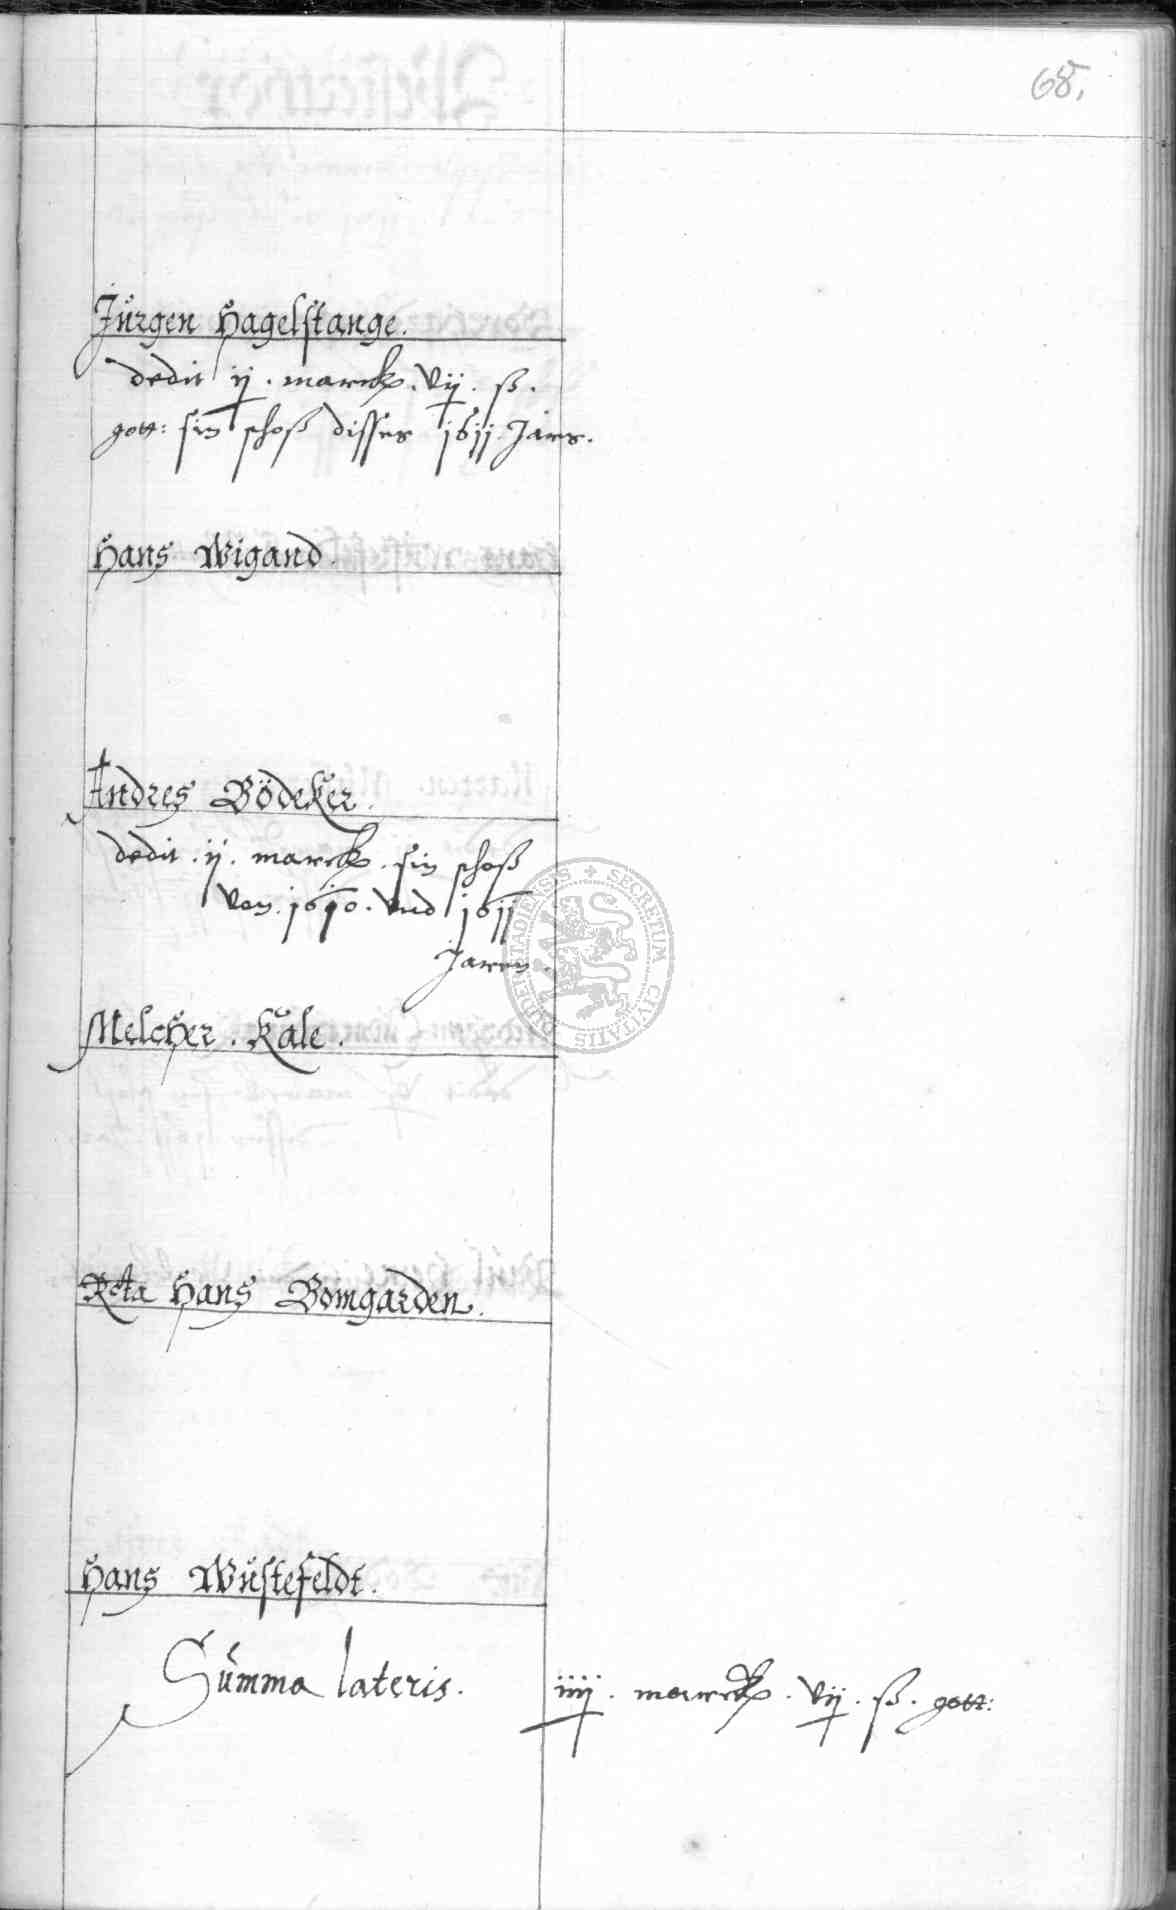 68.
Jürgen Hagelstange.
dedit ij. marck. vij. ß.
gott: sin schoß disses 1611. Jars.
Hans Wigand.
Andres Bödeker.
dedit. ij. marck. sin schoß
von. 1610. vnd 1611
Jaren.
Melcher. Kale.
Rcta Hans Bomgarden.
Hans Wüstefeldt.
Summa lateris. iiij. marck. vij. ß. gott:
SECRETUM CIVITATIS DUDERSTADIENSIS